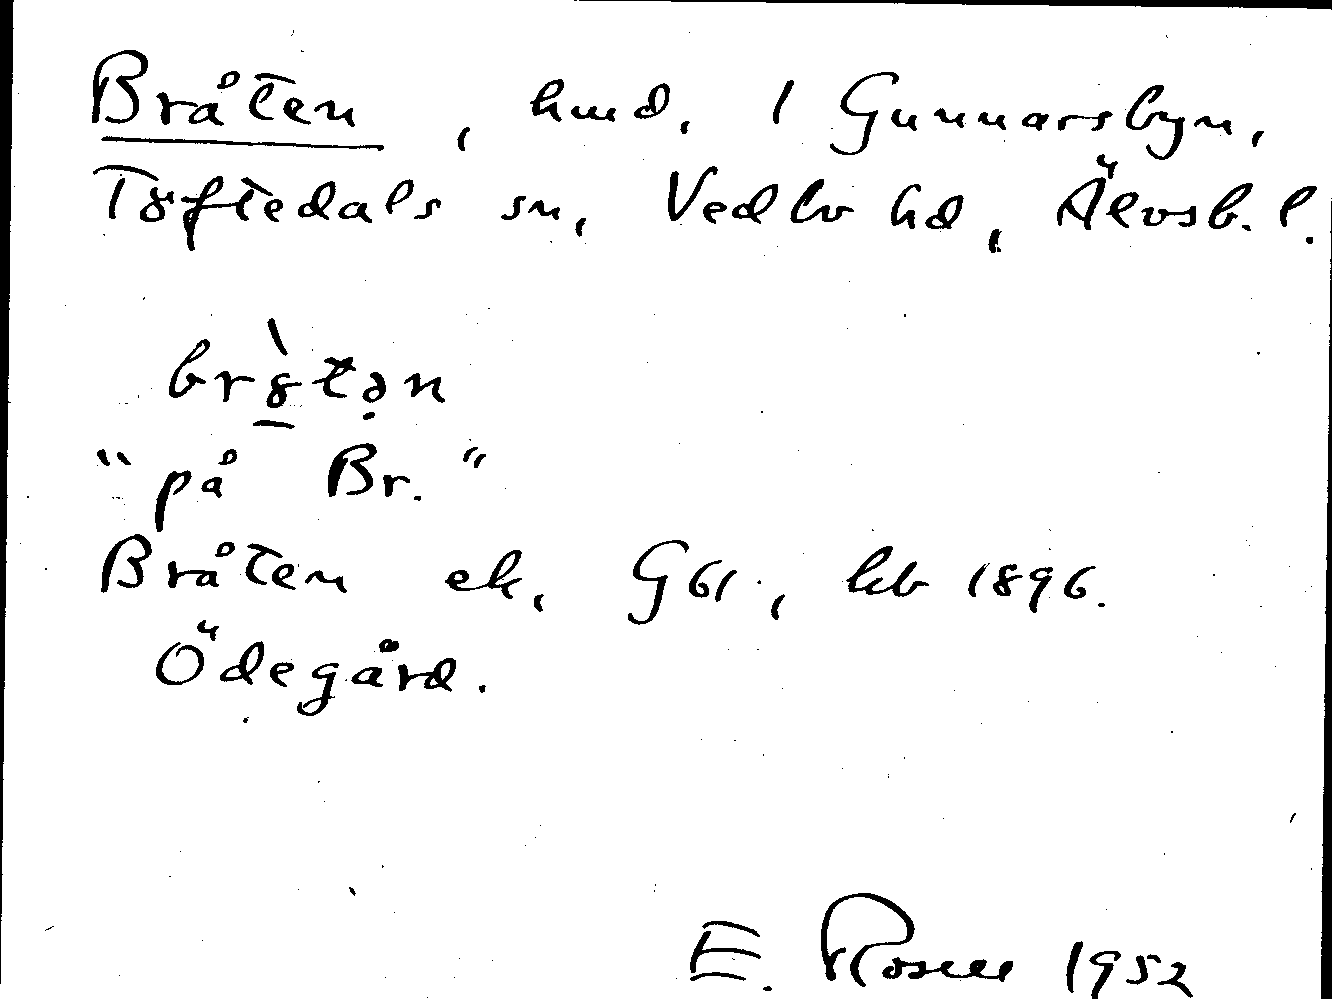 Bråten, hmd. 1 Gunnarsbyn,
Töftedals sn, Vedbo hd, Älvsb. l.
brȣ̀tən
"på Br."
Bråten ek, G61, kb 1896.
Ödegård.
E. Rosell 1952